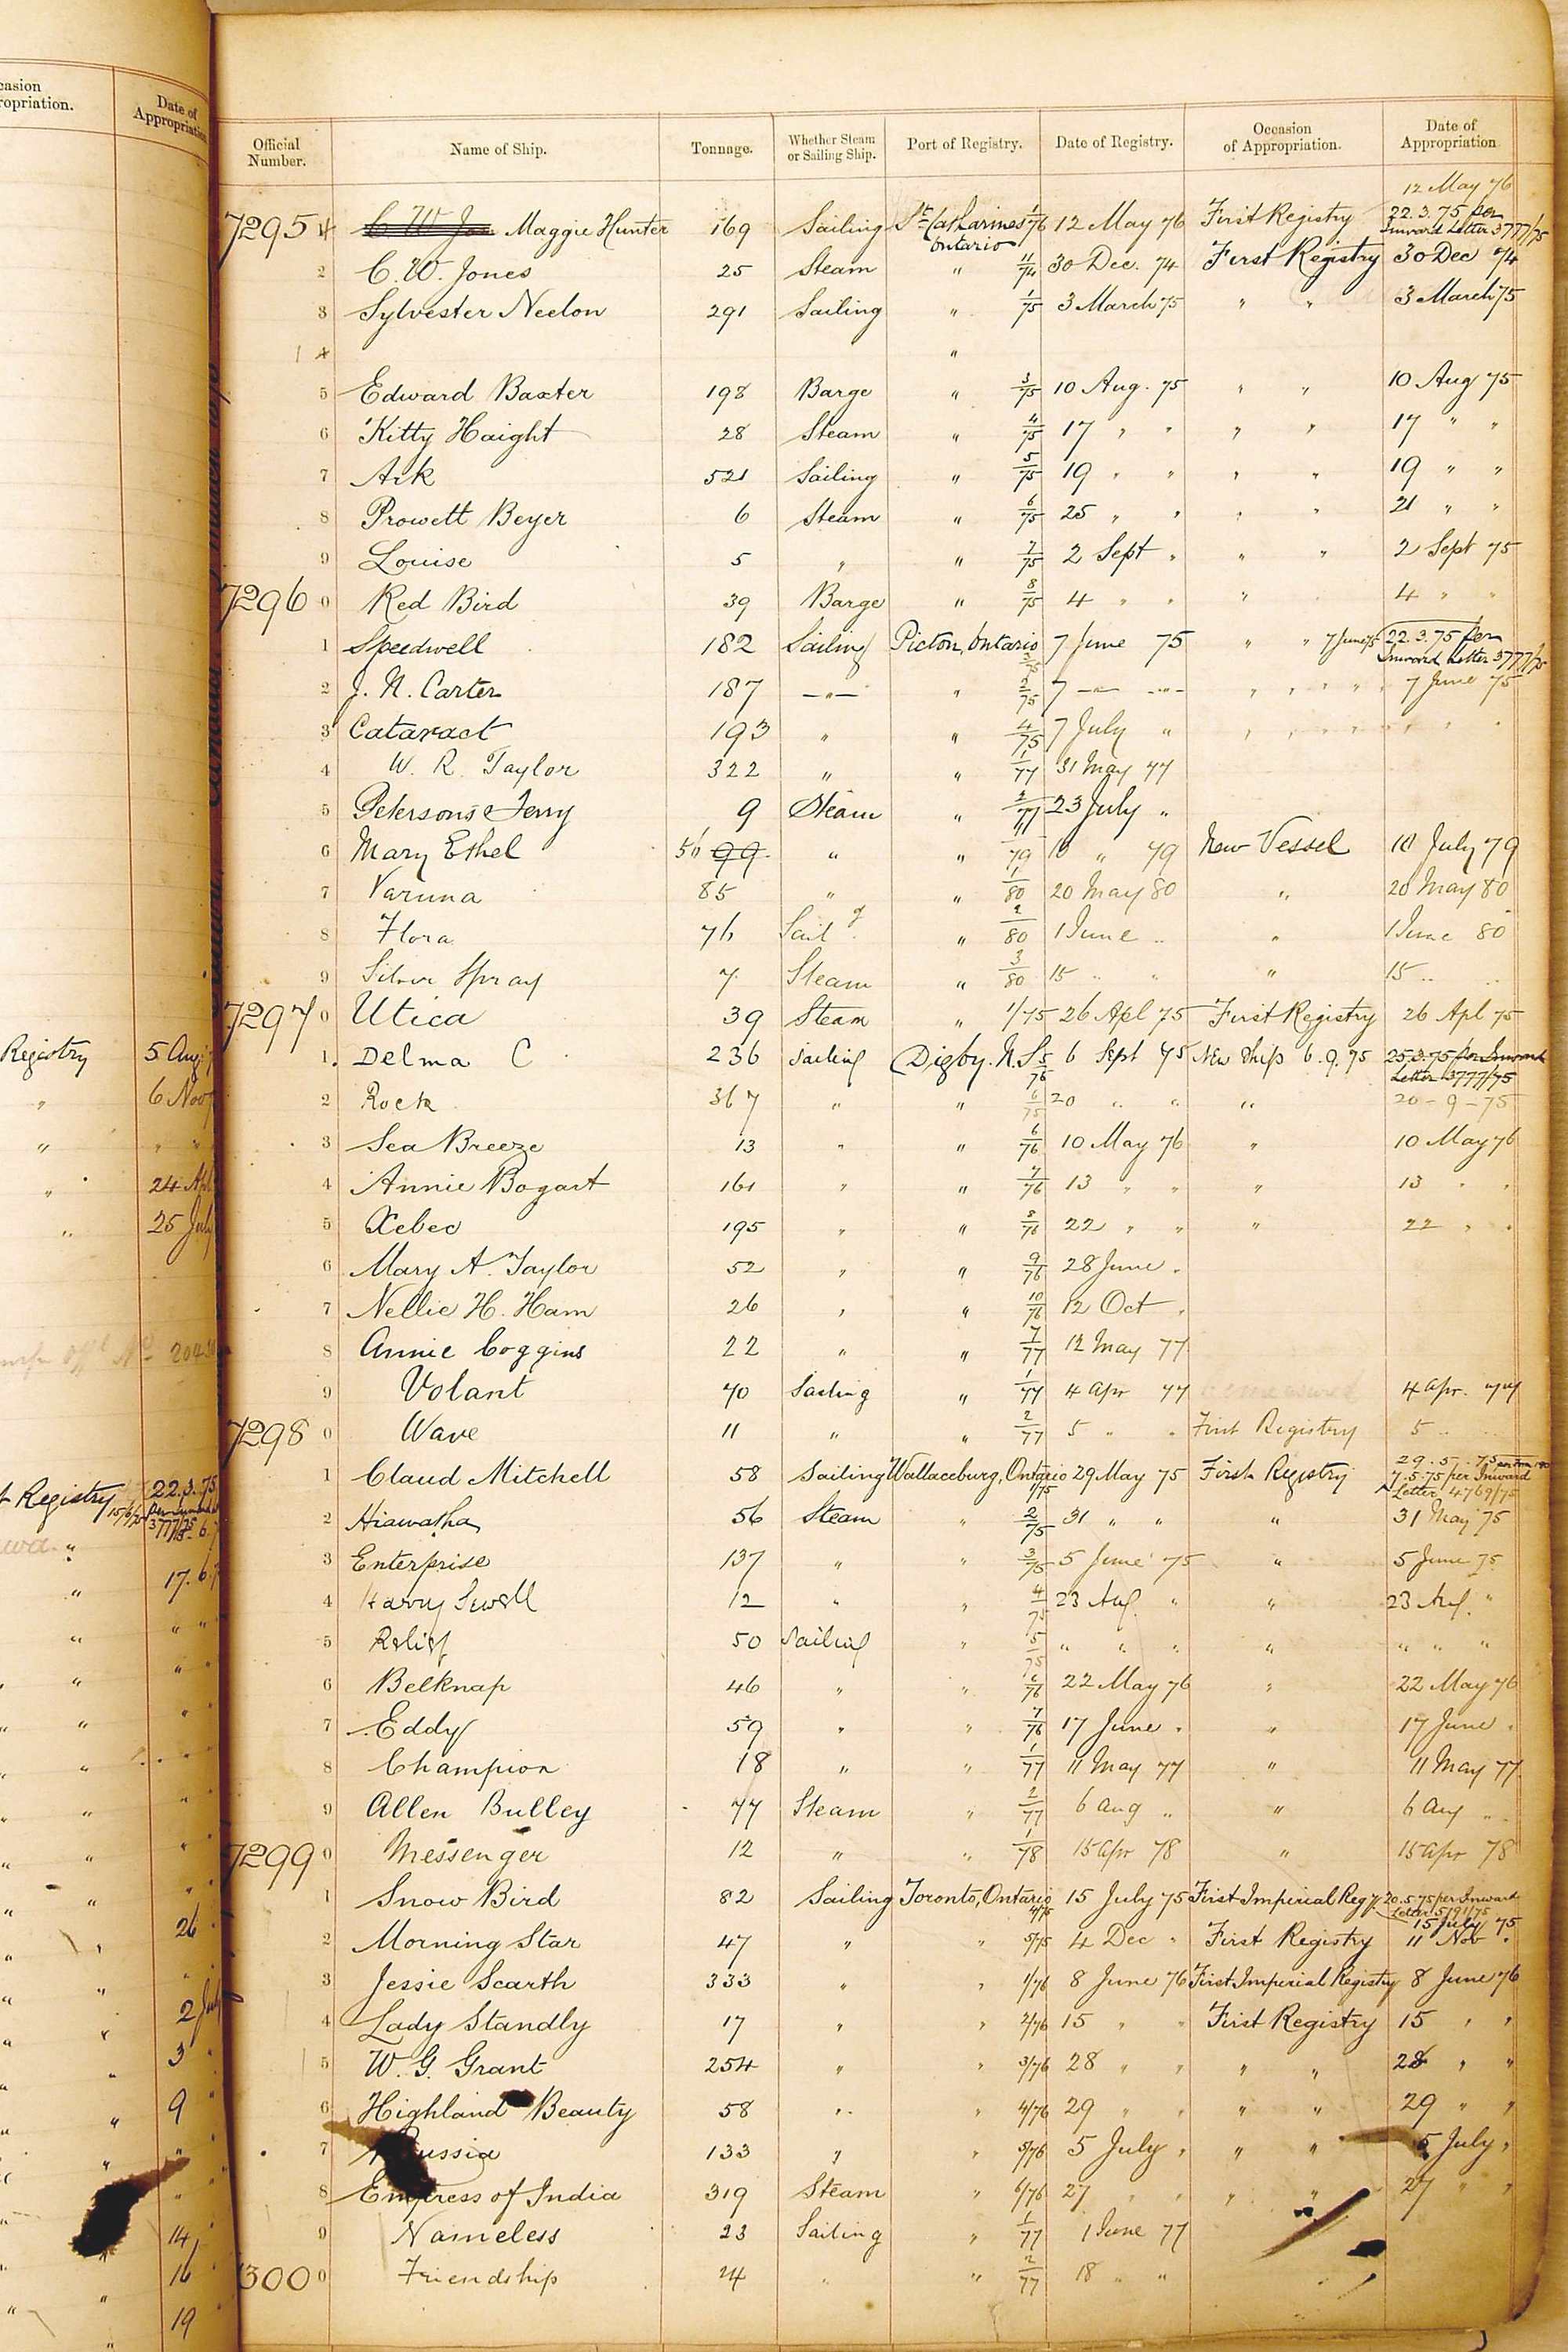 casion
ropriation.
Date of
Appropriation
Registry 5 Aug
" 6 Nov
" " "
" 24 Apl
" 25 July
No 204
Registry 22.3.75
3777/75
" 17.6
26
2 Jul
3
9
14
16
19
Official Number. Name of Ship. Tonnage. Whether Steam or Sailing Ship. Port of Registry. Date of Registry. Occasion of Appropriation. Date of Appropriation
12 May 76
7295 C. W. Jo Maggie Hunter 169 Sailing St Catharines Ontario 1/76 12 May 76 First Registry 22.3.75 per Inward Letter 3777/75
2 C. W. Jones 25 Steam " 11/74 30 Dec. 74 First Registry 30 Dec 74
3 Sylvester Neelon 291 Sailing " 1/75 3 March 75 " " 3 March 75
4 "
5 Edward Baxter 198 Barge " 3/75 10 Aug. 75 " " 10 Aug 75
6 Kitty Haight 28 Steam " 4/75 17 " " " " 17 " "
7 Ark 521 Sailing " 5/75 19 " " " " 19 " "
8 Prowett Beyer 6 Steam " 6/75 25 " " " " 21 " "
9 Louise 5 " " 7/75 2 Sept " " " 2 Sept 75
7296 0 Red Bird 39 Barge " 8/75 4 " " " 4 " "
1 Speedwell 182 Sailing Picton, Ontario 7 June 75 " " 7 June 75 22.3.75 per Inward Letter 3777/75
2 J. N. Carter 187 —"— " 2/75 7 —"— —"— " " " " 7 June 75
3 Cataract 193 " " 4/75 7 July " " " " " " " "
4 W. R. Taylor 322 " " 1/77 31 May 77
5 Petersons Ferry 9 Steam " 2/77 23 July "
6 Mary Ethel 56 99 " " 1/79 18 " 79 New Vessel 18 July 79
7 Varuna 85 " " 1/80 20 May 80 " 20 May 80
8 Flora 76 Sailg " 2/80 1 June " " 1 June 80
9 Silver Spray 7 Steam " 3/80 15 " " " 15 " "
7297 0 Utica 39 Steam " 1/75 26 Apl 75 First Registry 26 Apl 75
1 Delma C 236 Sailing Digby. N.S. 5/75 6 Sept 75 New Ship 6.9.75 25.3.75 per Inward Letter 3777/75
2 Rock 367 " " 6/75 20 " " " 20-9-75
3 Sea Breeze 13 " " 6/76 10 May 76 " 10 May 76
4 Annie Bogart 161 " " 7/76 13 " " " 13 " "
5 Xebec 195 " " 8/76 22 " " " 22 " "
6 Mary A. Taylor 52 " " 9/76 28 June "
7 Nellie H. Ham 26 " " 10/76 12 Oct "
8 Annie Coggins 22 " " 7/77 12 May 77
9 Volant 70 Sailing " 1/77 4 Apr 77 4 Apr. 77
7298 0 Wave 11 " " 2/77 5 " " First Registry 5 " "
1 Claud Mitchell 58 Sailing Wallaceburg, Ontario 1/75 29 May 75 First Registry 29.5.75 7.5.75 per Inward Letter 4769/75
2 Hiawatha 56 Steam " 2/75 31 " " " 31 May 75
3 Enterprise 137 " " 3/75 5 June 75 " 5 June 75
4 Harvy Sewell 12 " " 4/75 23 Aug. " " 23 Aug. "
5 Relief 50 Sailing " 5/75 " " " " " " "
6 Belknap 46 " " 6/76 22 May 76 " 22 May 76
7 Eddy 59 " " 7/76 17 June " " 17 June "
8 Champion 18 " " 1/77 11 May 77 " 11 May 77
9 Allen Bulley 77 Steam " 2/77 6 Aug " " 6 Aug "
7299 0 Messenger 12 " " 1/78 15 Apr 78 " 15 Apr 78
1 Snow Bird 82 Sailing Toronto, Ontario 4/75 15 July 75 First Imperial Regy 20.5.75 per Inward Letter 5191/75 15 July 75
2 Morning Star 47 " " 5/75 4 Dec " First Registry 11 Nov "
3 Jessie Scarth 333 " " 1/76 8 June 76 First Imperial Registry 8 June 76
4 Lady Standly 17 " " 2/76 15 " " First Registry 15 " "
5 W. G. Grant 254 " " 3/76 28 " " " " 28 " "
6 Highland Beauty 58 " " 4/76 29 " " " " 29 " "
7 Russia 133 " " 5/76 5 July " " " 5 July "
8 Empress of India 319 Steam " 6/76 27 " " " " 27 " "
9 Nameless 23 Sailing " 1/77 1 June 77
300 0 Friendship 24 " " 2/77 18 " "